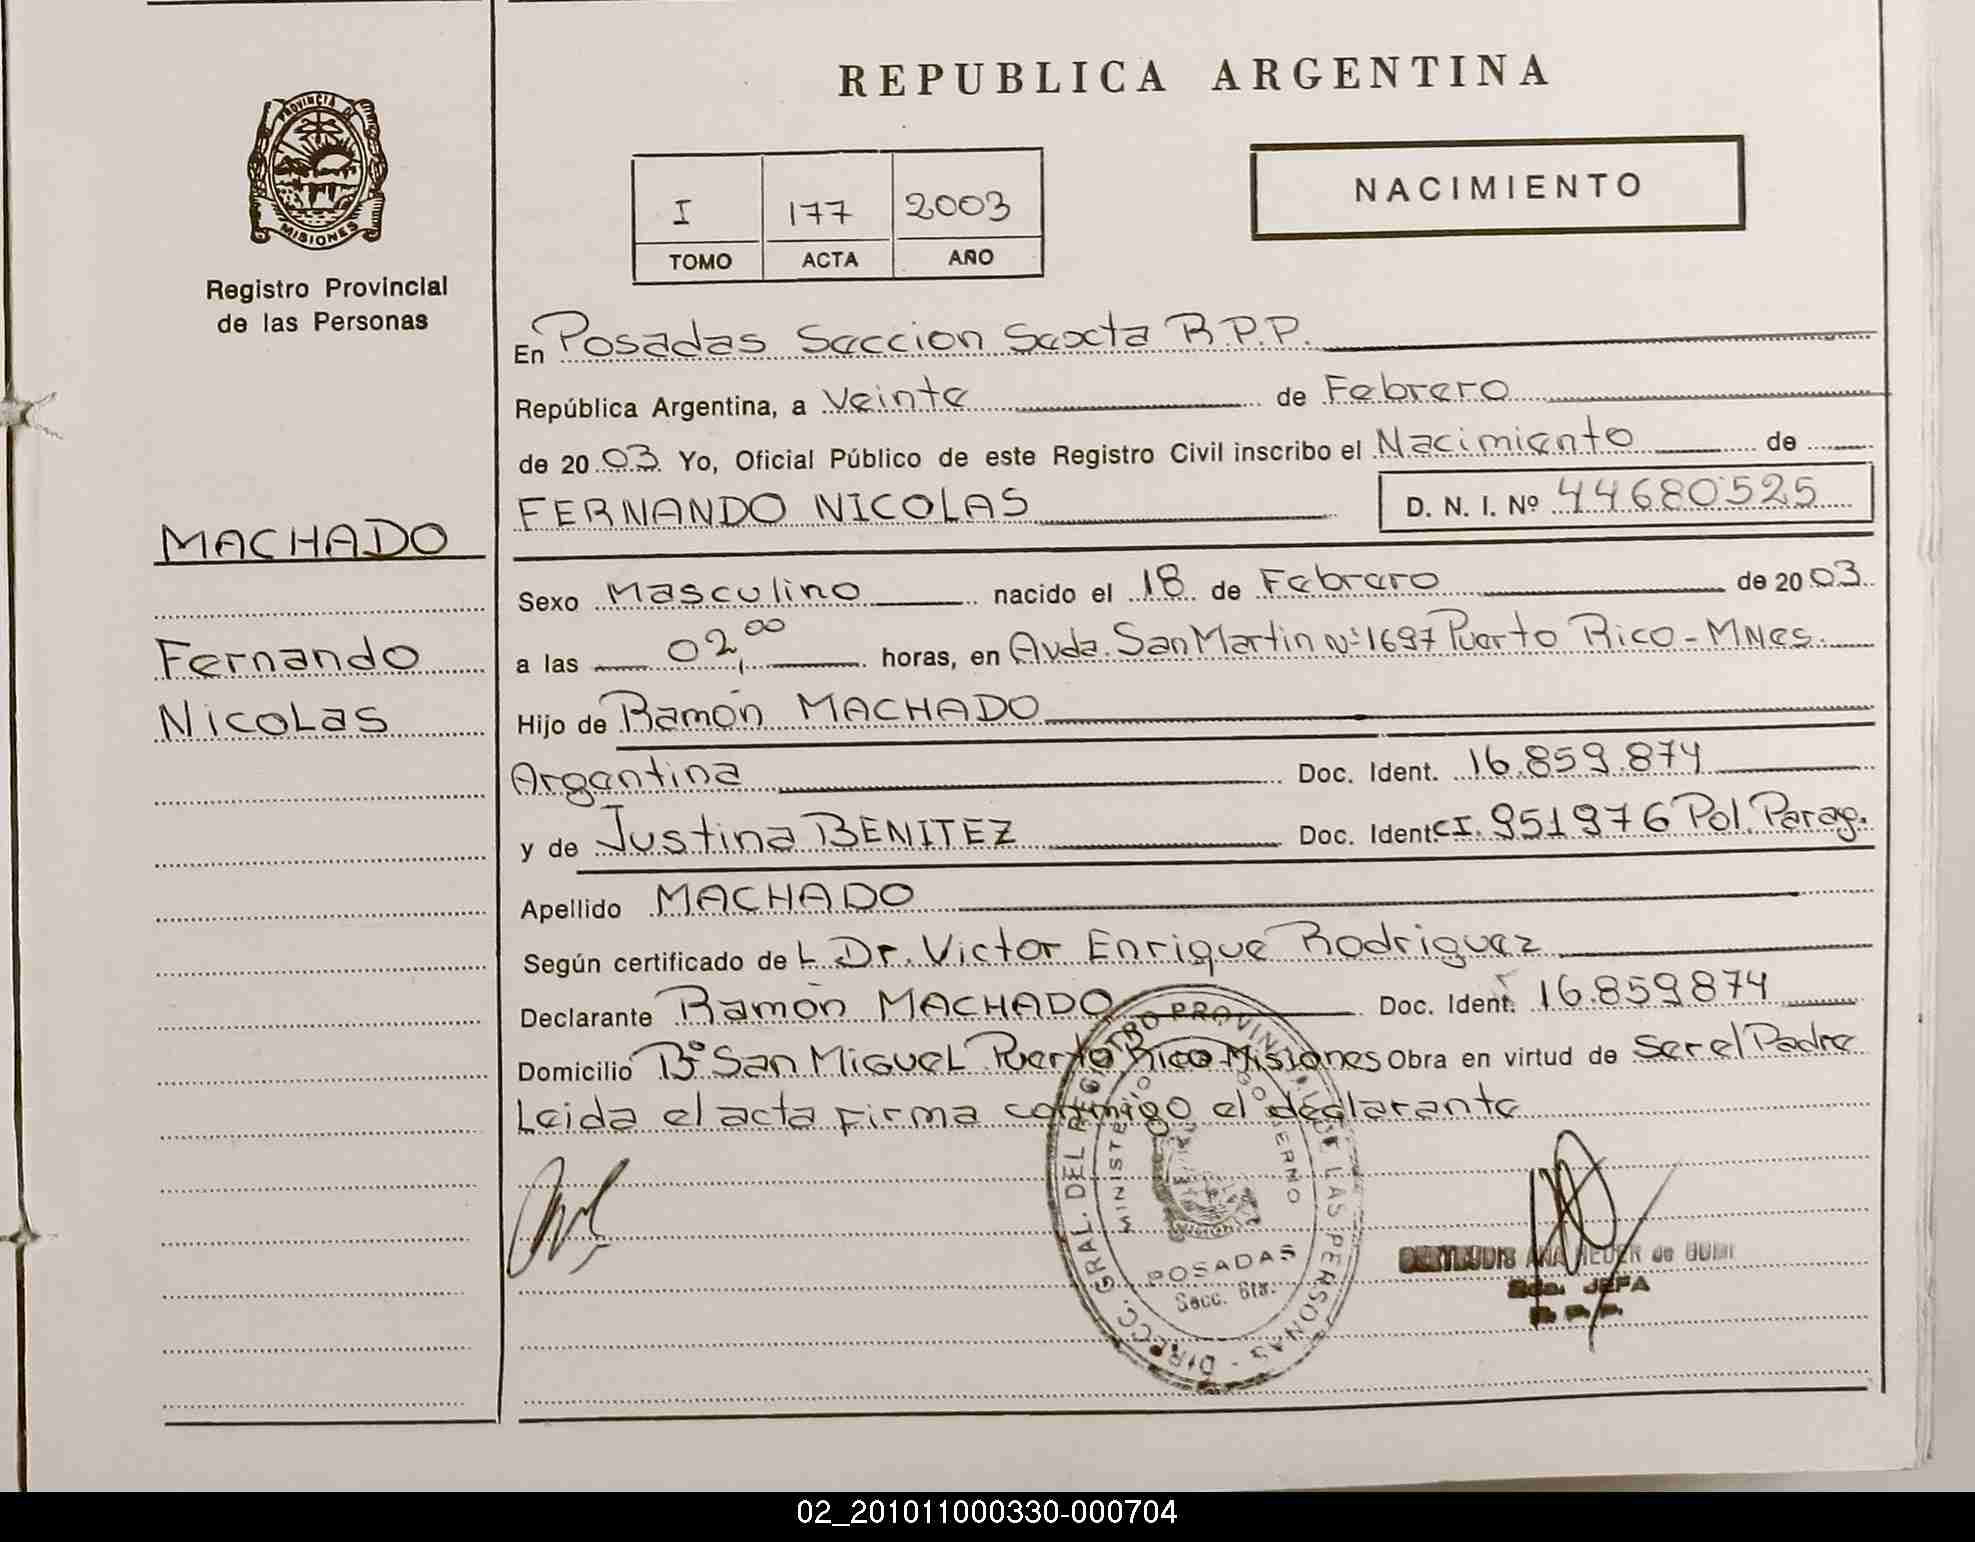 REPUBLICA ARGENTINA
PROVINCIA DE
MISIONES
Registro Provincial
de las Personas
I 177 2003
TOMO ACTA AÑO
NACIMIENTO
En Posadas Seccion Sexta R.P.P.
República Argentina, a Veinte de Febrero
de 2003 Yo, Oficial Público de este Registro Civil inscribo el Nacimiento de
FERNANDO NICOLAS D. N. I. Nº 44680525
MACHADO
Fernando
Nicolas
Sexo Masculino nacido el 18 de Febrero de 2003
a las 02,00 horas, en Avda. San Martin Nº 1697 Puerto Rico - MNes.
Hijo de Ramón MACHADO
Argentina Doc. Ident. 16.859.874
y de Justina BENITEZ Doc. Ident. CI. 951976 Pol. Parag.
Apellido MACHADO
Según certificado de L Dr. Victor Enrique Rodriguez
Declarante Ramón MACHADO Doc. Ident. 16.859874
Domicilio Bº San Miguel Puerto Rico Misiones Obra en virtud de Ser el Padre
Leida el acta firma conmigo el declarante
DIRECC. GRAL. DEL REGISTRO PROVINCIAL DE LAS PERSONAS -
MINISTERIO GOBIERNO
POSADAS
Secc. 6ta.
ANA de
JEFA
R. P. P.
02_201011000330-000704